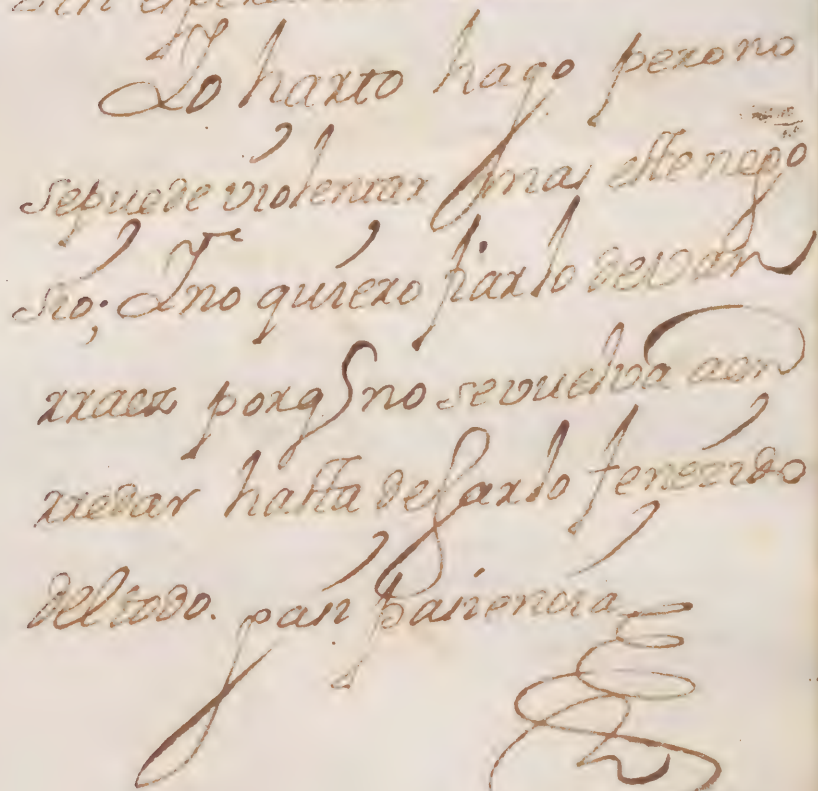 Yo harto hago pero no
sepuede violentar mas este nego
sio; Y no quiero fiarlo de Van
rraez porq no se vuelva a en
rredar hasta dejarlo feneczido
del todo.